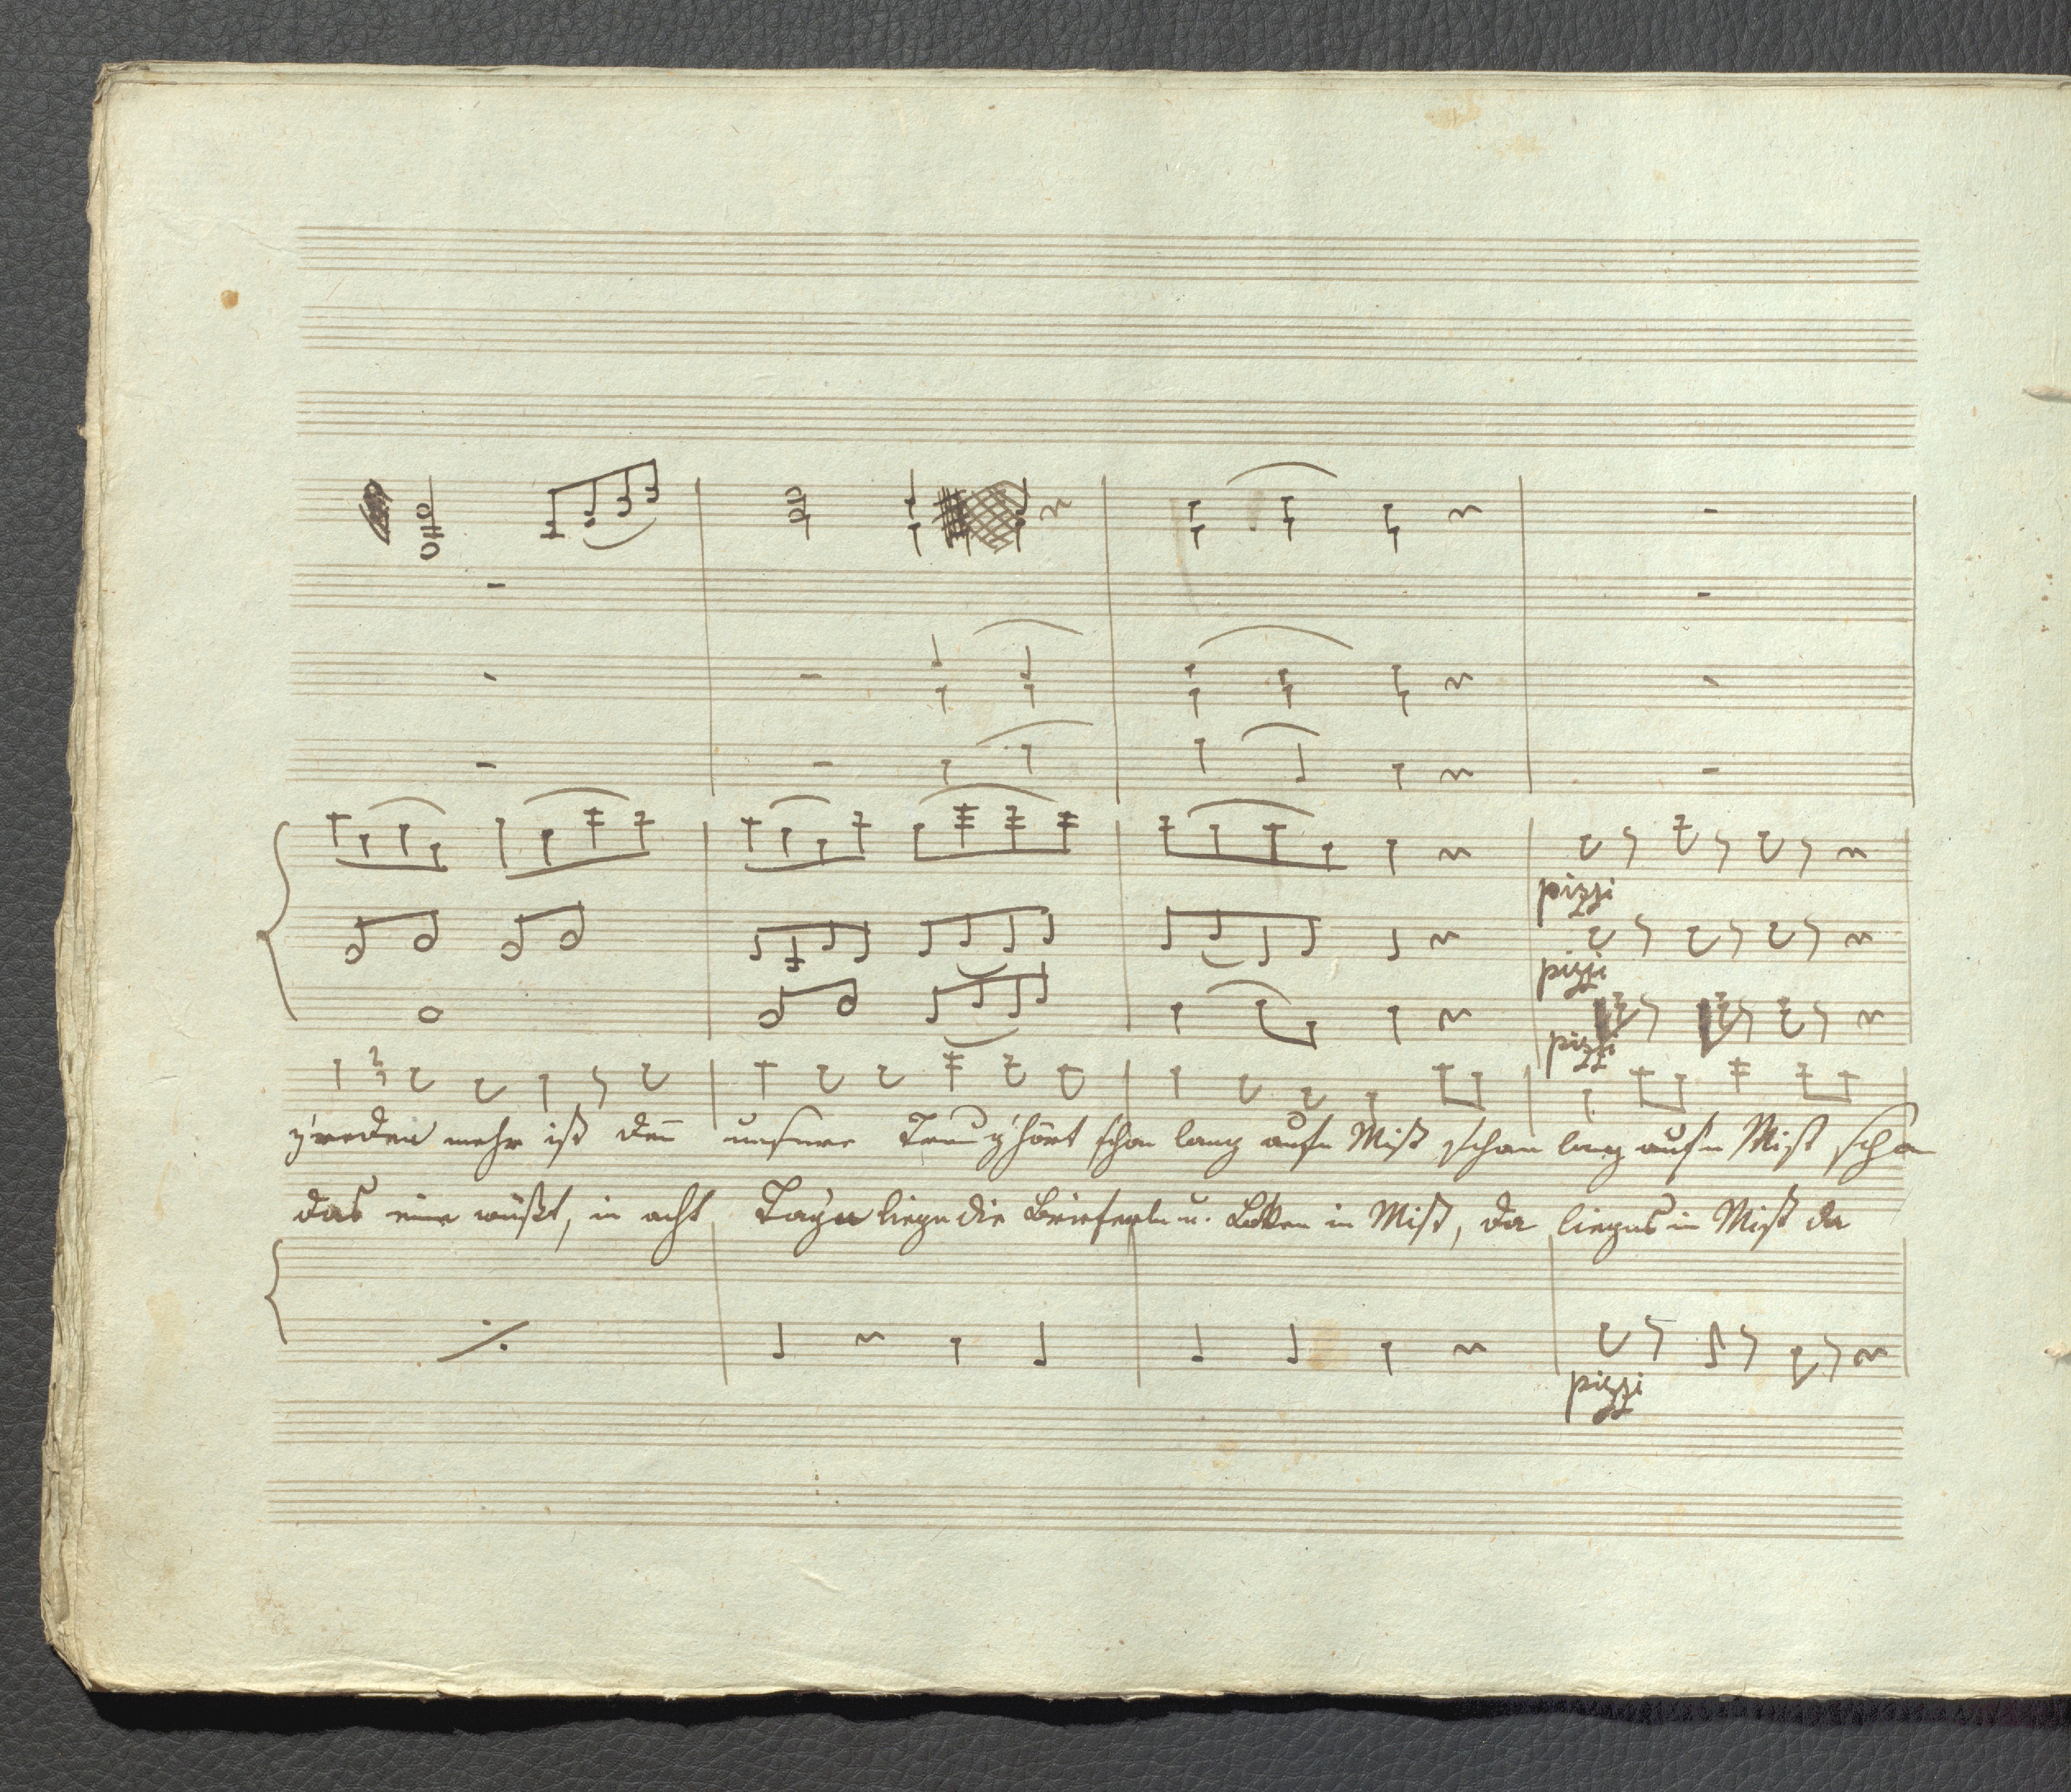 pizzi
pizzi
pizzi
z'reden mehr ist den unsere g'hört schon lang aufn Mist schon lang aufn Mist schon
das eine wüßt, in acht Tagen liegn die Brieferln u. Loken in Mist, da liegns in Mist da
pizzi